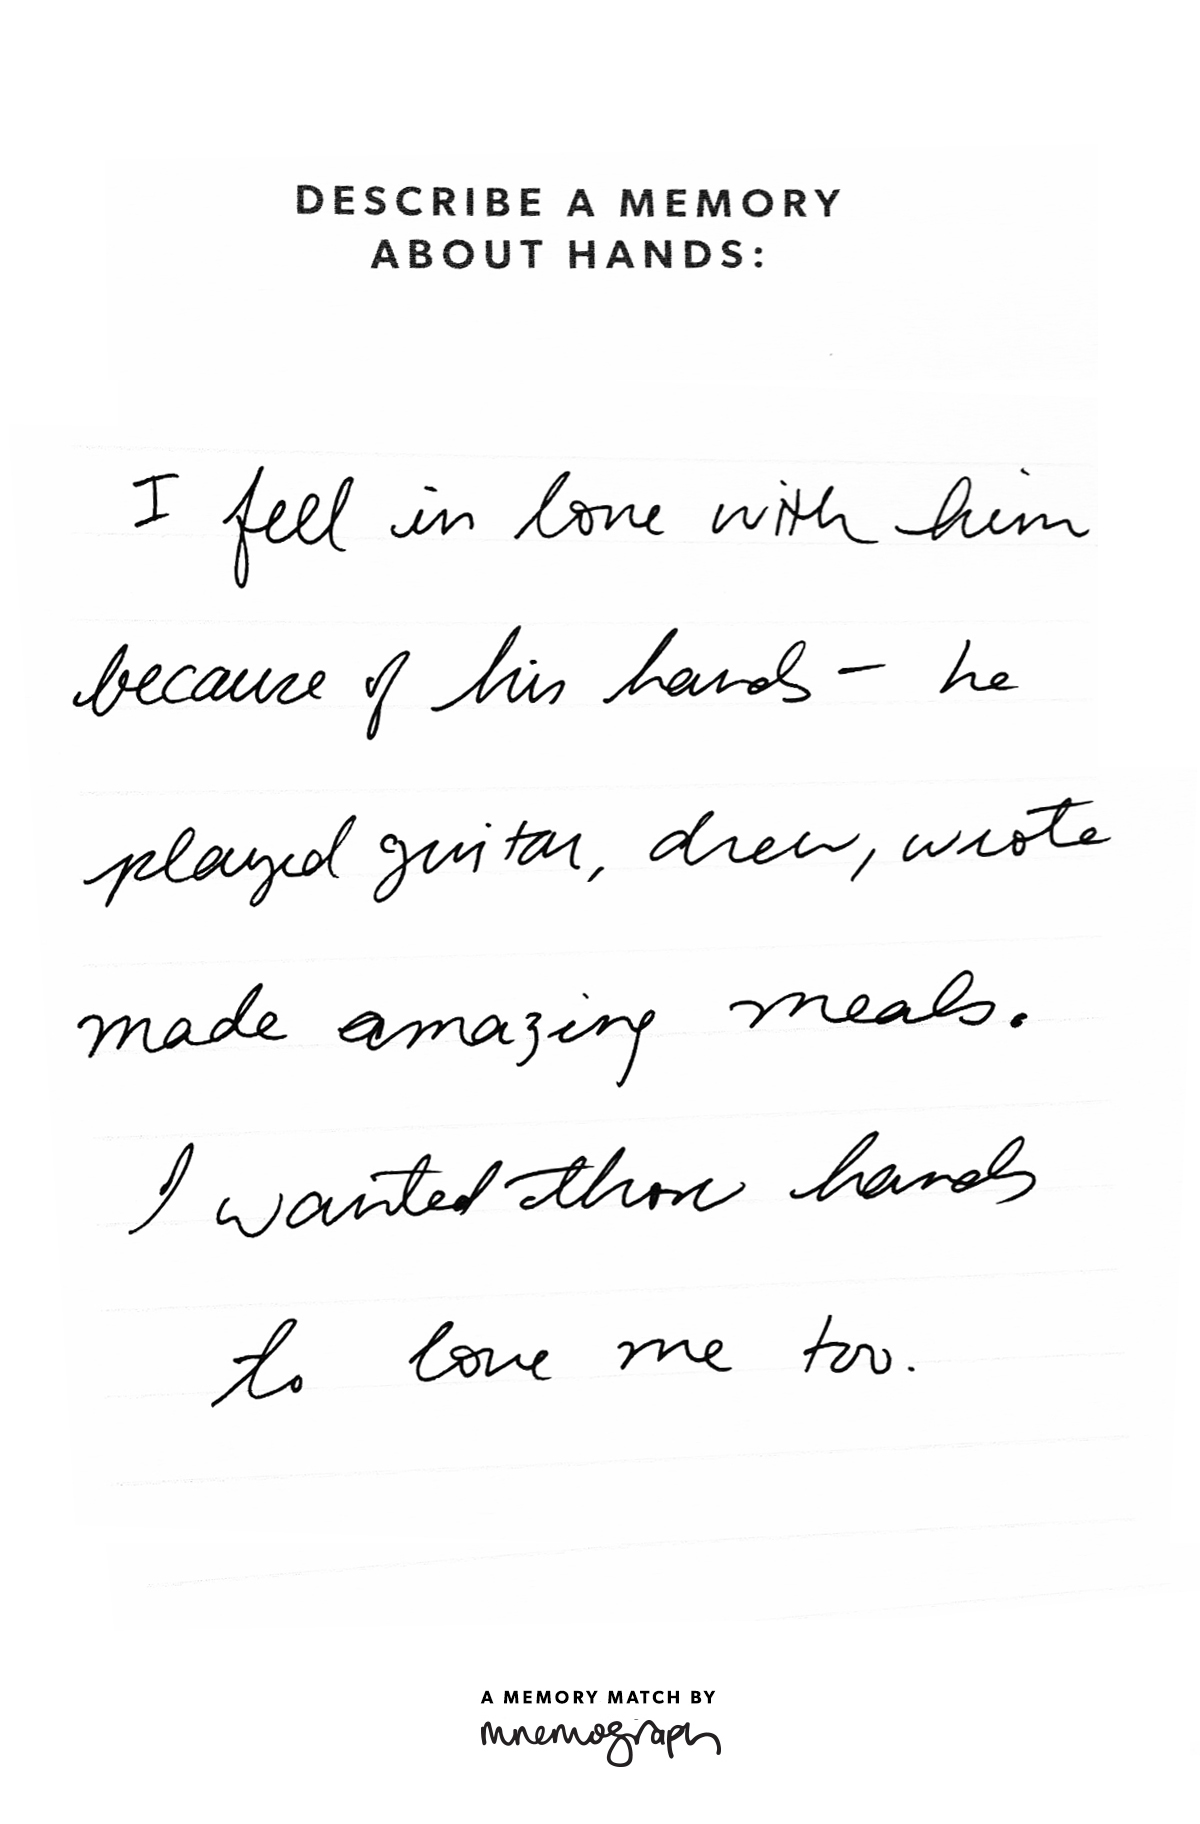 DESCRIBE A MEMORY
ABOUT HANDS:
I fell in love with him
because of his hands – he
played guitar, drew, wrote
made amazing meals.
I wanted those hands
to love me too.
A MEMORY MATCH BY
mnemograph